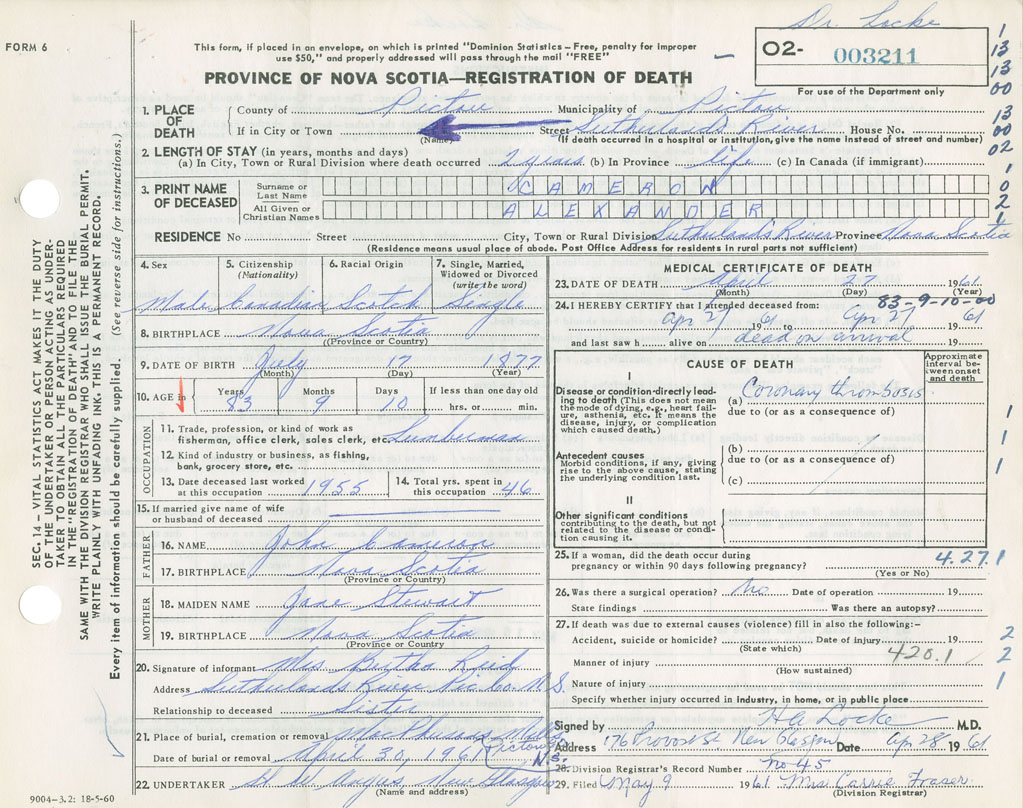 Dr. Locke
FORM 6
This form, if placed in an envelope, on which is printed "Dominion Statistics – Free, penalty for improper
use $50," and properly addressed will pass through the mail "FREE"
PROVINCE OF NOVA SCOTIA—REGISTRATION OF DEATH
O2- 003211
For use of the Department only
1 13 13 00 13 00 02
1. PLACE OF DEATH
County of Pictou Municipality of Pictou
If in City or Town (Name) Street Sutherland's River House No.
(If death occurred in a hospital or institution, give the name instead of street and number)
2. LENGTH OF STAY (in years, months and days)
(a) In City, Town or Rural Division where death occurred 2 years (b) In Province life (c) In Canada (if immigrant)
3. PRINT NAME OF DECEASED
Surname or Last Name CAMERON
All Given or Christian Names ALEXANDER
1 0 2 1
RESIDENCE No Street City, Town or Rural Division Sutherland's River Province Nova Scotia
(Residence means usual place of abode. Post Office Address for residents in rural parts not sufficient)
4. Sex Male
5. Citizenship (Nationality) Canadian
6. Racial Origin Scotch
7. Single, Married, Widowed or Divorced (write the word) Single
8. BIRTHPLACE Nova Scotia
(Province or Country)
9. DATE OF BIRTH July 17 1877
(Month) (Day) (Year)
10. AGE in Years 83 Months 9 Days 10 If less than one day old hrs. or min.
OCCUPATION
11. Trade, profession, or kind of work as
fisherman, office clerk, sales clerk, etc. Lumberman
12. Kind of industry or business, as fishing,
bank, grocery store, etc.
13. Date deceased last worked
at this occupation 1955
14. Total yrs. spent in
this occupation 46
15. If married give name of wife
or husband of deceased
FATHER
16. NAME John Cameron
17. BIRTHPLACE Nova Scotia
(Province or Country)
MOTHER
18. MAIDEN NAME Jane Stewart
19. BIRTHPLACE Nova Scotia
(Province or Country)
20. Signature of informant Mrs. Bertha Reid
Address Sutherland's River Pic. Co. N.S.
Relationship to deceased Sister
21. Place of burial, cremation or removal
Pictou N.S.
Date of burial or removal April 30, 1961
22. UNDERTAKER H. W. Angus, New Glasgow
(Name and address)
MEDICAL CERTIFICATE OF DEATH
23. DATE OF DEATH April 27 1961
(Month) (Day) (Year)
83-9-10-00
24. I HEREBY CERTIFY that I attended deceased from:
Apr 27 1961 to Apr 27 1961
and last saw h alive on dead on arrival 19
CAUSE OF DEATH
Approximate interval between onset and death
I
Disease or condition directly leading to death (This does not mean
the mode of dying, e.g., heart failure, asthenia, etc. It means the
disease, injury, or complication which caused death.)
(a) Coronary thrombosis
due to (or as a consequence of)
Antecedent causes
Morbid conditions, if any, giving
rise to the above cause, stating
the underlying condition last.
(b)
due to (or as a consequence of)
(c)
1 1
II
Other significant conditions
contributing to the death, but not
related to the disease or condition causing it.
25. If a woman, did the death occur during
pregnancy or within 90 days following pregnancy?
(Yes or No)
4.27.1
26. Was there a surgical operation? No Date of operation 19
State findings Was there an autopsy?
27. If death was due to external causes (violence) fill in also the following:-
Accident, suicide or homicide? Date of injury 19
(State which)
420.1
Manner of injury
(How sustained)
Nature of injury
Specify whether injury occurred in industry, in home, or in public place
2 2 1
Signed by H A Locke M.D.
Address 176 Provost St. New Glasgow Date Apr 28 1961
28. Division Registrar's Record Number No 45
29. Filed May 9 1961 Mrs Carrie Fraser
(Division Registrar)
SEC. 14 – VITAL STATISTICS ACT MAKES IT THE DUTY
OF THE UNDERTAKER OR PERSON ACTING AS UNDER-
TAKER TO OBTAIN ALL THE PARTICULARS REQUIRED
IN THE "REGISTRATION OF DEATH" AND TO FILE THE
SAME WITH THE DIVISION REGISTRAR WHO SHALL ISSUE THE BURIAL PERMIT.
WRITE PLAINLY WITH UNFADING INK. THIS IS A PERMANENT RECORD.
Every item of information should be carefully supplied. (See reverse side for instructions.)
9004-3.2: 18-5-60